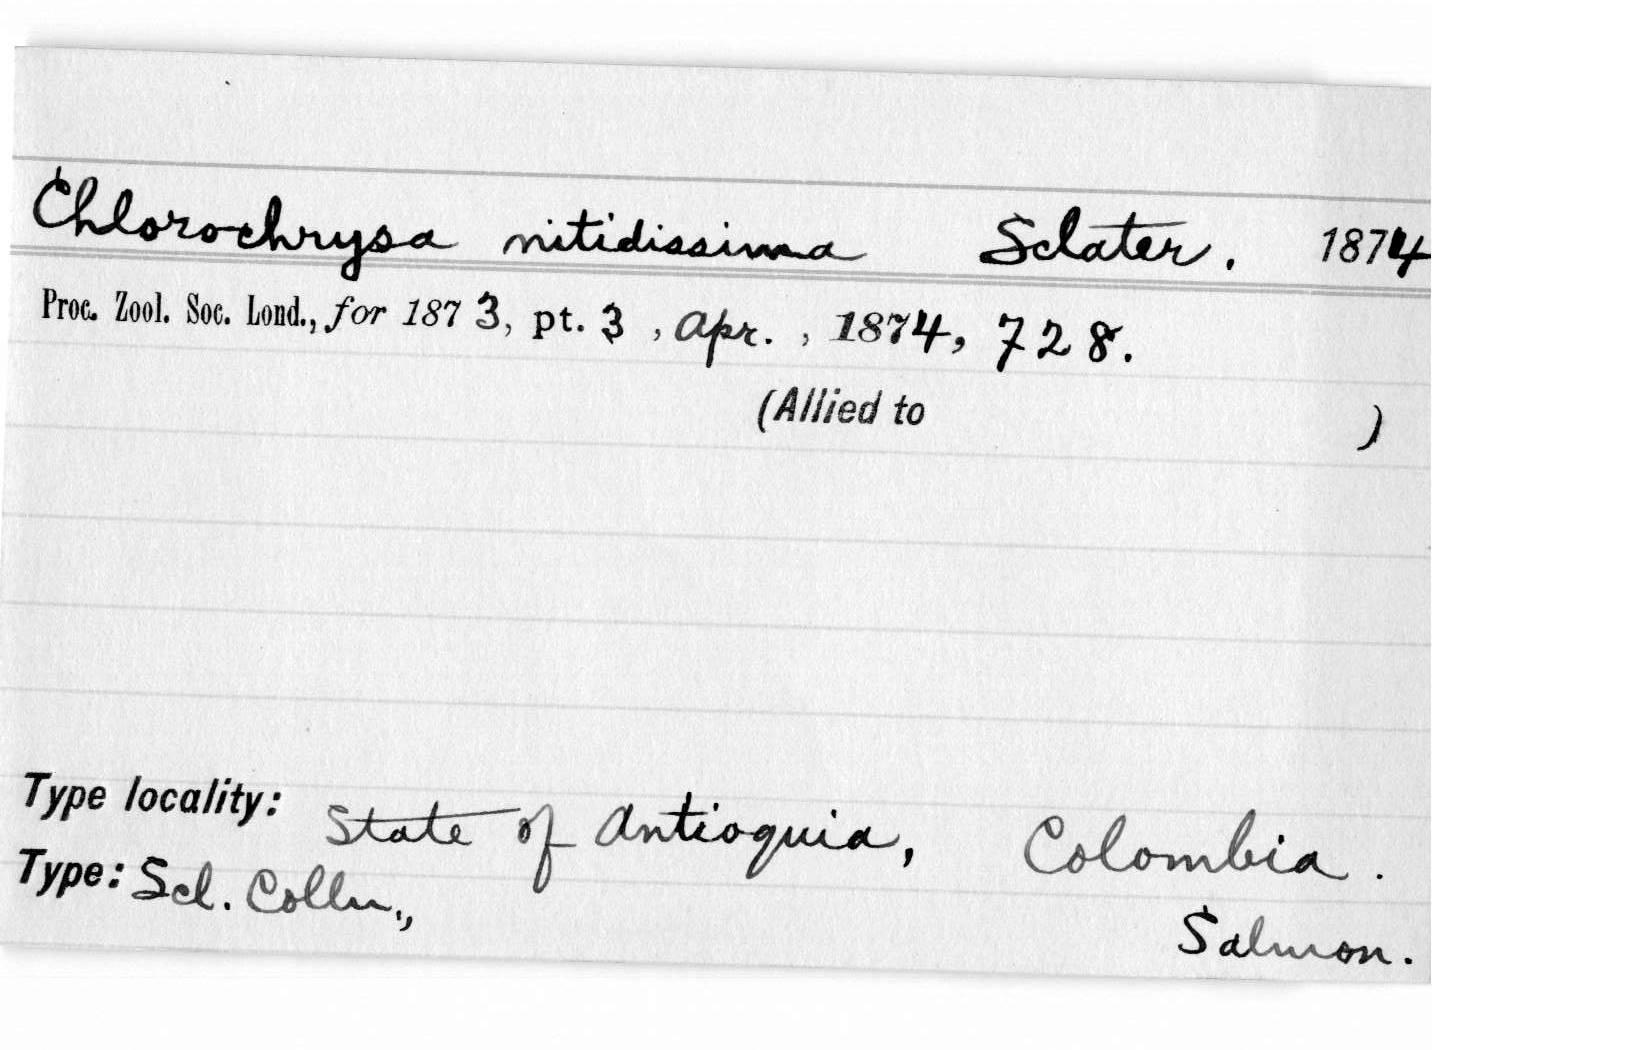 Chlorochrysa nitidissima Sclater. 1874
Proc. Zool. Soc. Lond., for 1873, pt. 3, Apr., 1874, 728.
(Allied to )
Type locality: State of Antioquia, Colombia.
Type: Scl. Colln.,
Salmon.